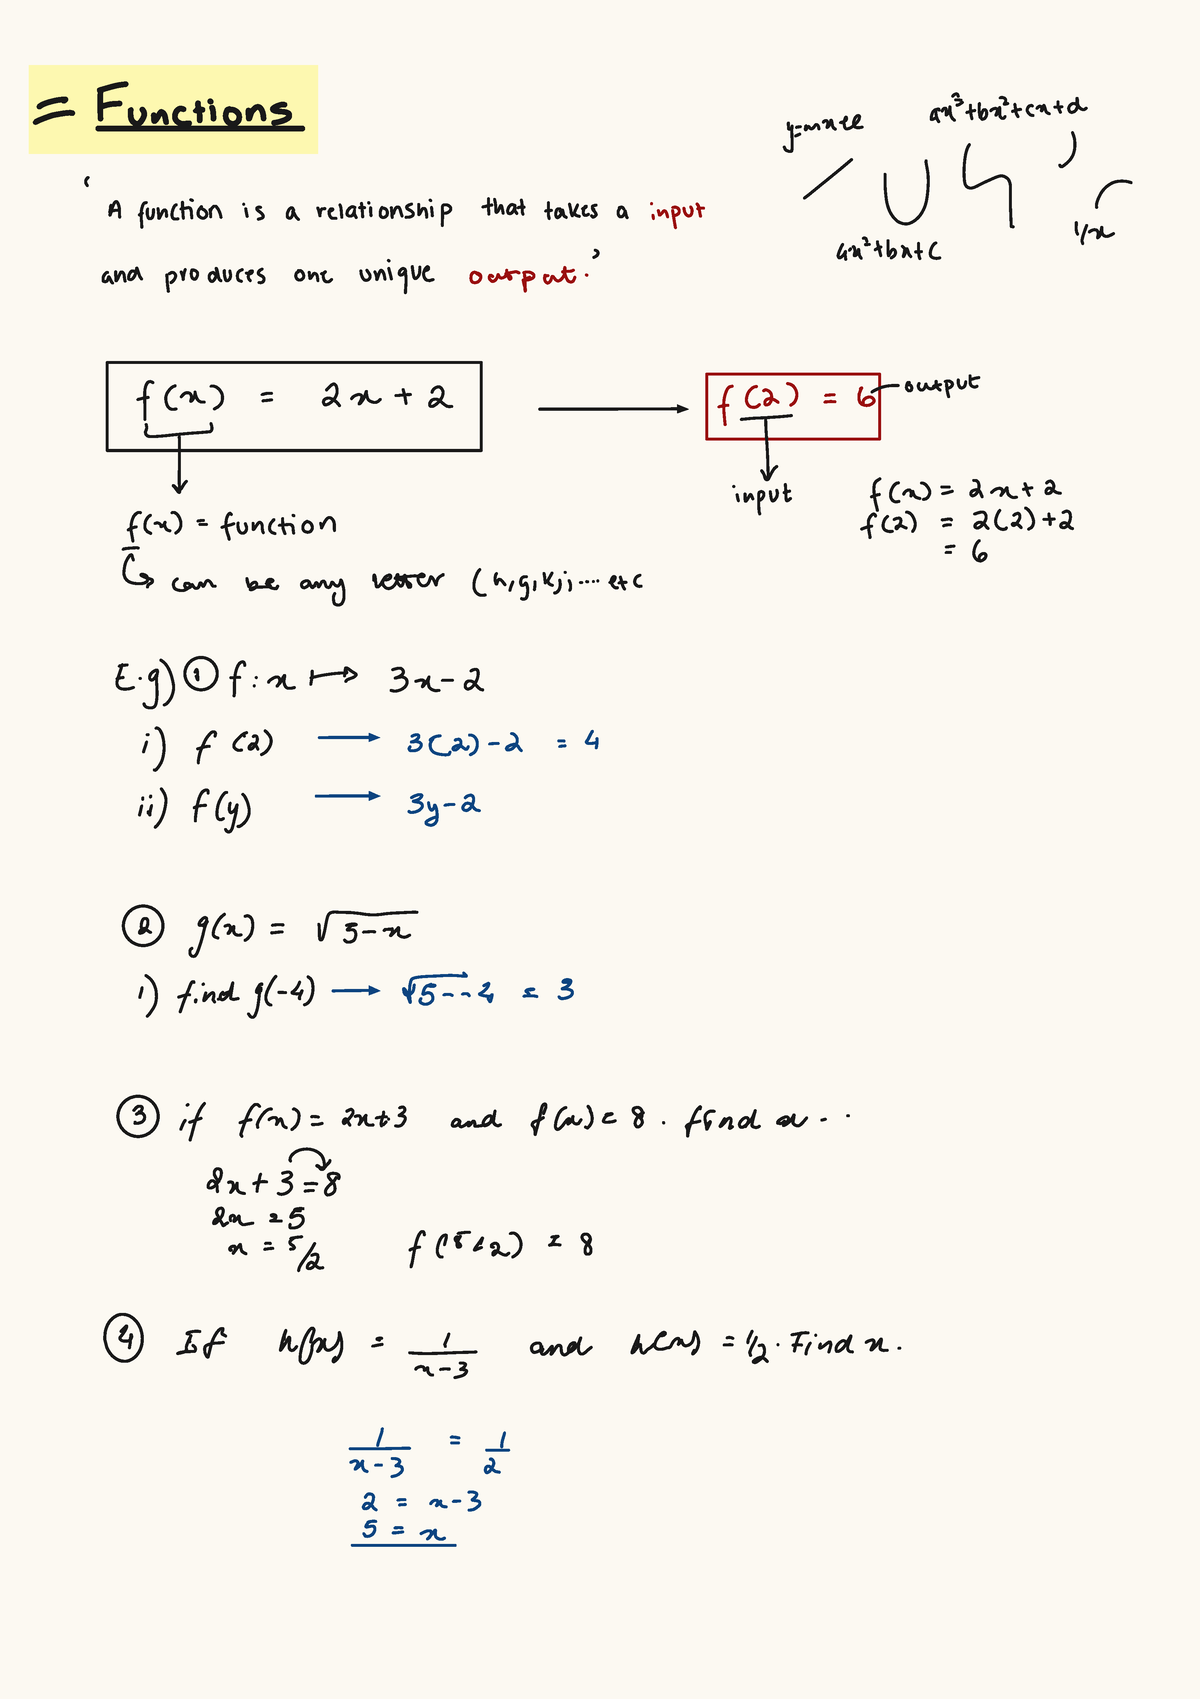 = Functions
y=mx+c
ax³+bx²+cx+d
ax²+bx+c
1/x
' A function is a relationship that takes a input
and produces one unique output.'
f(x) = 2x+2
f(2) = 6
output
input
f(x) = 2x+2
f(2) = 2(2)+2
= 6
f(x) = function
can be any letter (h,g,k,j.... etc
E.g) ① f:x ↦ 3x-2
i) f(2) → 3(2)-2 = 4
ii) f(y) → 3y-2
② g(x) = √5-x
i) find g(-4) → √5--4 = 3
③ if f(x) = 2x+3 and f(x) = 8. find x..
2x+3=8
2x=5
x = 5/2
f(5/2) = 8
④ If h(x) = 1/(x-3) and h(x) = 1/2. Find x.
1/(x-3) = 1/2
2 = x-3
5 = x